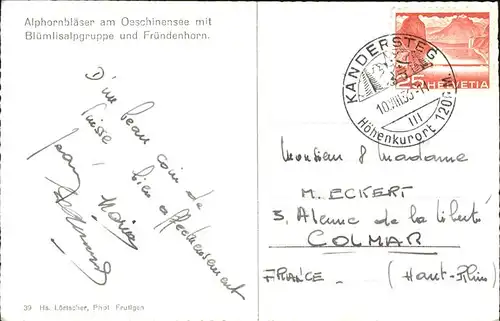 Alphornbläser am Oeschinensee mit
Blümlisalpgruppe und Fründenhorn.
D'un beau coin de
Suisse
bien affectueusement
39 Hs. Lörtscher, Phot. Frutigen
KANDERSTEG
III
Höhenkurort 1200 M.
25 HELVETIA
Monsieur & Madame
M. ECKERT
3, Avenue de la Liberté
COLMAR
FRANCE (Haut-Rhin)